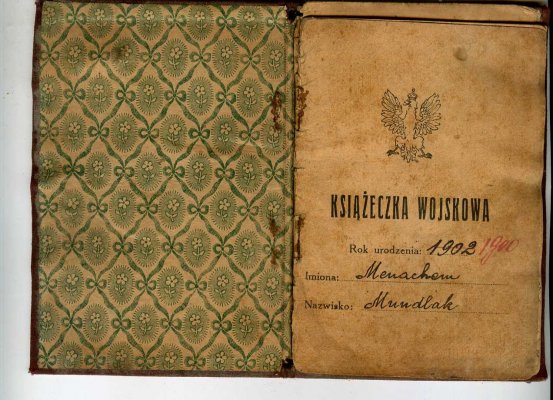 KSIĄŻECZKA WOJSKOWA
Rok urodzenia: 1902 1900
Imiona: Menachem
Nazwisko: Mundlak